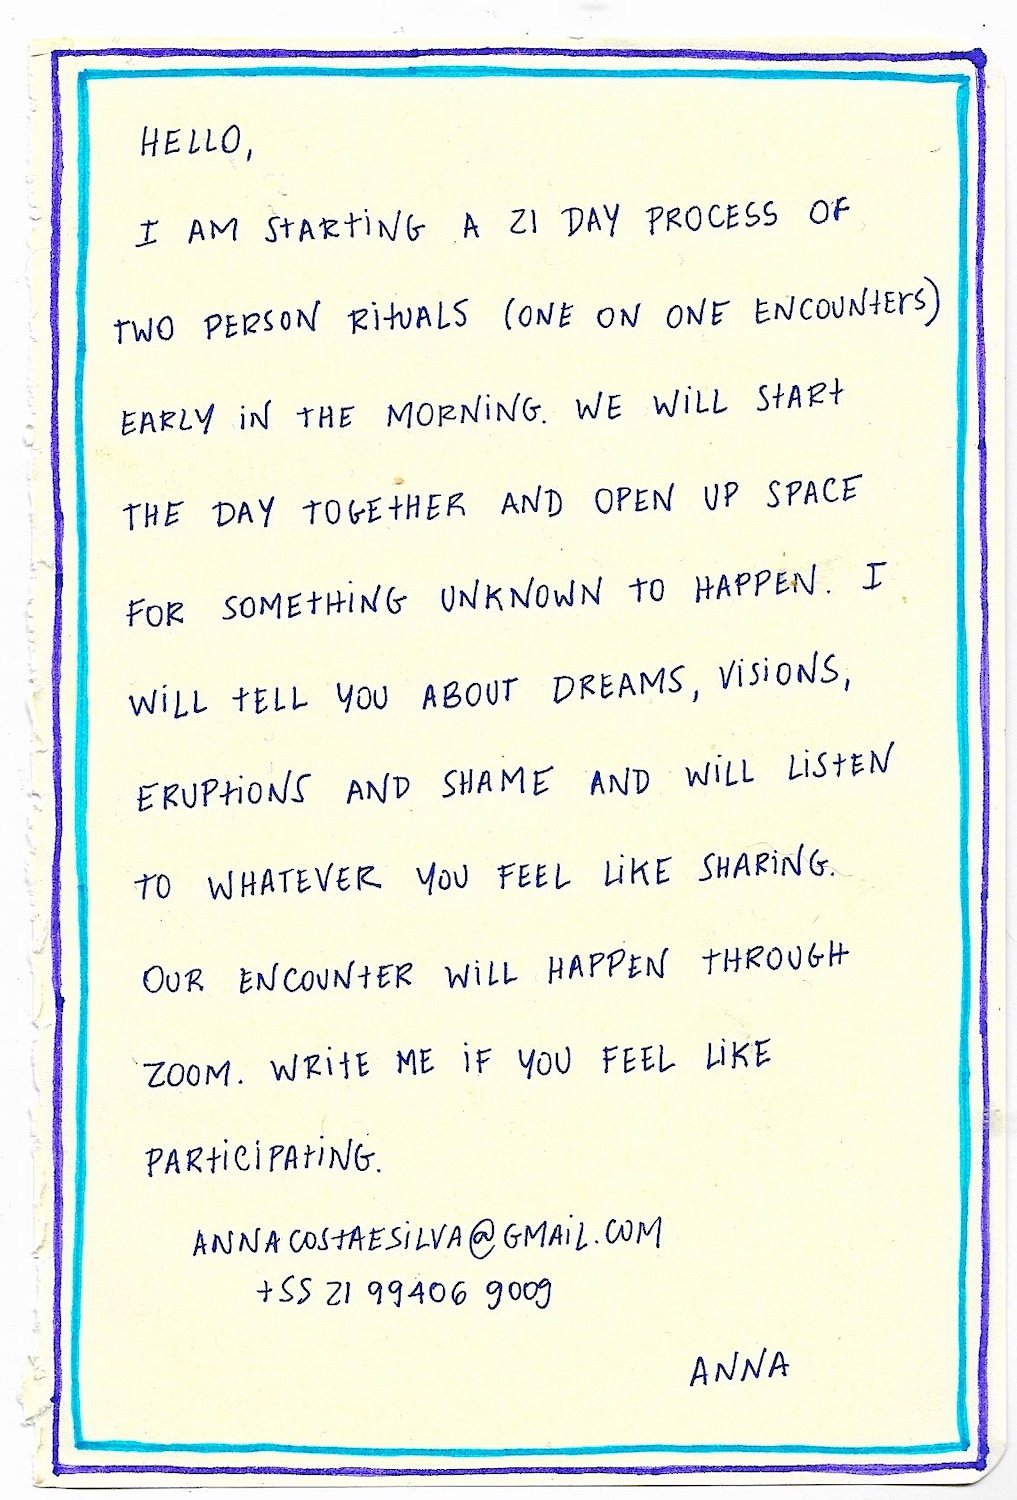 HELLO,
I AM STARTING A 21 DAY PROCESS OF
TWO PERSON RITUALS (ONE ON ONE ENCOUNTERS)
EARLY IN THE MORNING. WE WILL START
THE DAY TOGETHER AND OPEN UP SPACE
FOR SOMETHING UNKNOWN TO HAPPEN. I
WILL TELL YOU ABOUT DREAMS, VISIONS,
ERUPTIONS AND SHAME AND WILL LISTEN
TO WHATEVER YOU FEEL LIKE SHARING.
OUR ENCOUNTER WILL HAPPEN THROUGH
ZOOM. WRITE ME IF YOU FEEL LIKE
PARTICIPATING.
ANNACOSTAESILVA@GMAIL.COM
+55 21 99406 9009
ANNA